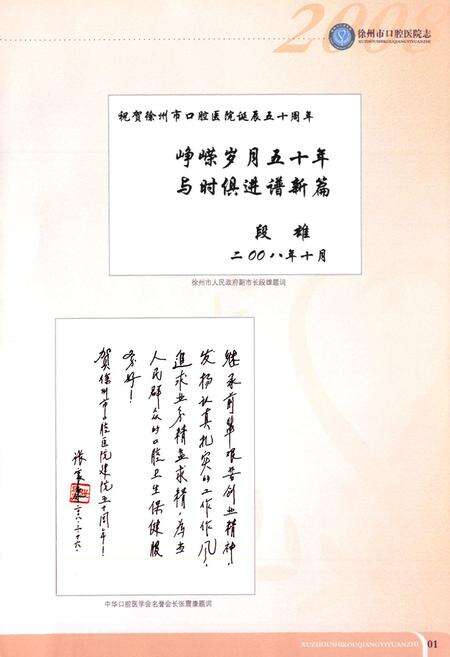 2008
徐州市口腔医院志
XUZHOUSHIKOUQIANGYIYUANZHI
祝贺徐州市口腔医院诞辰五十周年
峥嵘岁月五十年
与时俱进谱新篇
段雄
二〇〇八年十月
徐州市人民政府副市长段雄题词
继承前辈艰苦创业精神，
发扬认真扎实的工作作风，
追求业务精益求精，为
人民群众的口腔卫生保健服
务好！
贺徐州市口腔医院建院五十周年！
张震康
中华口腔医学会名誉会长张震康题词
XUZHOUSHIKOUQIANGYIYUANZHI
01